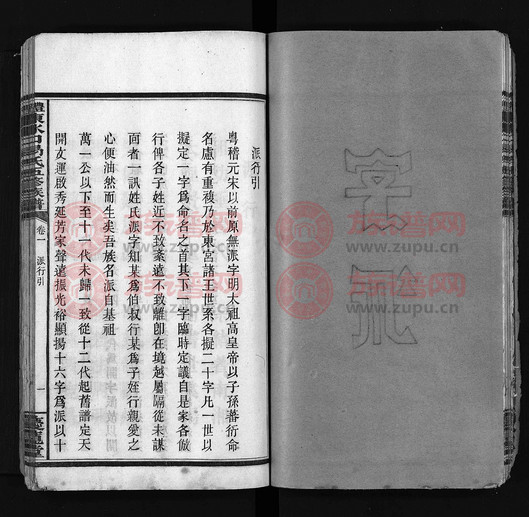 字派
派行引
粵稽元宋以前原無派字明太祖高皇帝以子孫蕃衍命
名慮有重複乃於東宮諸王世系各擬二十字凡一世以
擬定一字爲命名之首其下一字臨時定議自是家各倣
行俾各子姓近不致紊遠不致離卽在境越屬隔從未謀
面者一訊姓氏派字知某爲伯叔行某爲子姪行親愛之
心便油然而生矣吾族名派自基祖
萬一公以下至十一代未歸一致從十二代起舊譜定天
開文運啟秀延芳家聲遠振光裕顯揚十六字爲派以十
醴東水口馬氏五修族譜
卷一
派行引
一
族谱网
www.zupu.cn
族谱网
www.zupu.cn
族谱网
www.zupu.cn
族谱网
www.zupu.cn